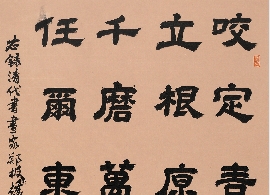 咬定青
立根原
千磨萬
任爾東
志錄清代書畫家鄭板